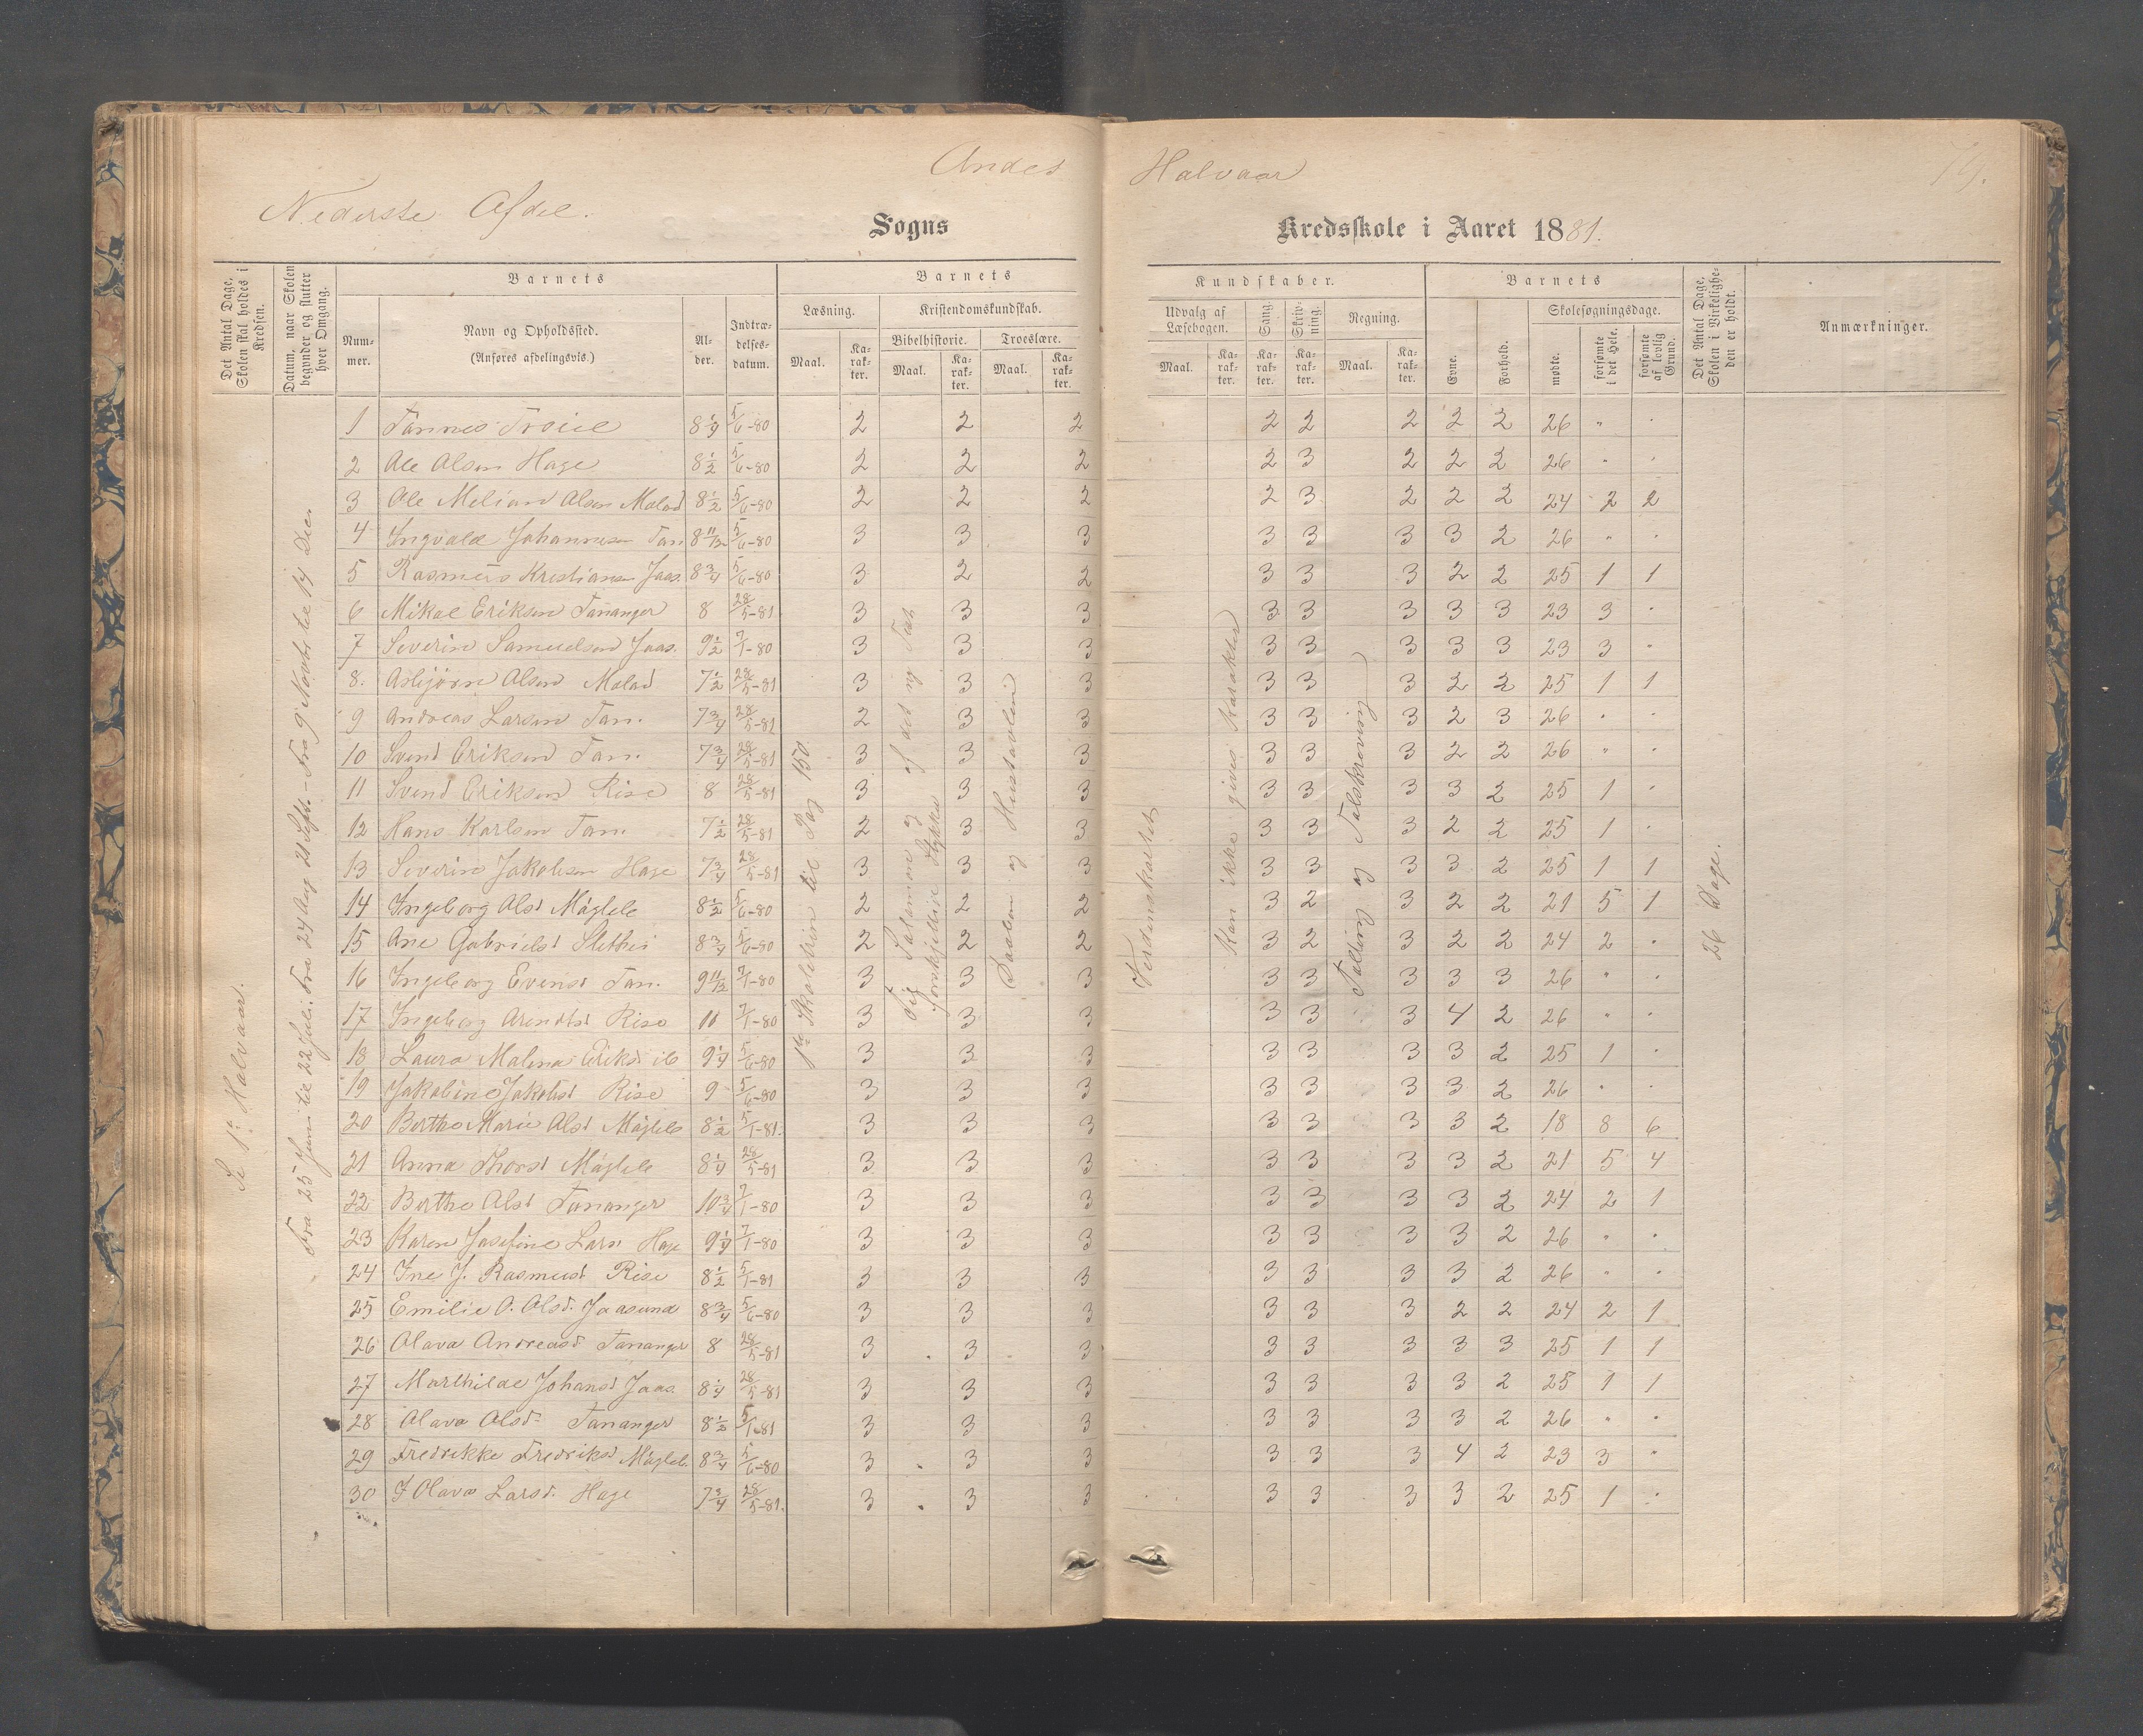 Andet Halvaar
79.
Nederste Afdel.
Sogns Kredsskole i Aaret 1881.
Det Antal Dage, Skolen skal holdes i Kredsen.
Datum, naar Skolen begynder og slutter hver Omgang.
Barnets
Barnets
Kundskaber.
Barnets
Det Antal Dage, Skolen i Virkeligheden er holdt.
Anmærkninger.
Nummer.
Navn og Opholdssted. (Anføres afdelingsvis.)
Alder.
Indtrædelsesdatum.
Læsning.
Kristendomskundskab.
Bibelhistorie.
Troeslære.
Udvalg af Læsebogen.
Sang.
Skrivning.
Regning.
Evne.
Forhold.
Skolesøgningsdage.
Maal. Karakter. Maal. Karakter. Maal. Karakter.
Maal. Karakter. Karakter. Karakter. Maal. Karakter.
mødte. forsømte i det Hele. forsømte af lovlig Grund.
Se 1ste Halvaar.
Fra 25 Juni til 22 Juli. Fra 24 Aug 21 Septr - Fra 9 Novbr til 14 Dec.
1ste Skoletrin til Pag 150
af det ny Test
Salomon og
forskjellige Stykker
Daaben og Hustavlen
Verdenskartet
Kan ikke gives Karakter
Tælling og Talskrivning
26 Dage.
1 Tønnes Troiel 8 1/4 5/6-80 2 2 2 2 2 2 2 2 26 " "
2 Ole Olsen Hage 8 1/2 5/6-80 2 2 2 2 3 2 2 2 26 " "
3 Ole Meliar Olsen Melad 8 1/2 5/6-80 2 2 2 2 3 2 2 2 24 2 2
4 Ingvald Johannesen Tan 8 11/12 5/6-80 3 3 3 3 3 3 3 2 26 " "
5 Rasmus Kristiansen Jaas. 8 3/4 5/6-80 3 2 2 3 3 3 2 2 25 1 1
6 Mikal Eriksen Tananger 8 28/5-81 3 3 3 3 3 3 3 3 23 3 "
7 Severin Samuelsen Jaas. 9 1/2 7/1-80 3 3 3 3 3 3 3 3 23 3 "
8. Asbjørn Olsen Melad 7 1/2 28/5-81 3 3 3 3 3 3 2 2 25 1 1
9 Andreas Larsen Tan. 7 3/4 28/5-81 2 3 3 3 3 3 2 3 26 " "
10 Svend Eriksen Tan. 7 3/4 28/5-81 3 3 3 3 3 3 2 2 26 " "
11 Svend Eriksen Risе 8 28/5-81 3 3 3 3 3 3 3 2 25 1 "
12 Hans Karlsen Tan. 7 1/2 28/5-81 2 3 3 3 3 3 2 2 25 1 "
13 Severin Jakobsen Hage 7 3/4 28/5-81 3 3 3 3 3 3 3 2 25 1 1
14 Ingeborg Olsd Mågleli 8 1/2 5/6-80 2 2 2 3 2 3 2 2 21 5 1
15 Ane Gabrielsd Slethei 8 3/4 5/6-80 2 2 2 3 2 3 2 2 24 2 "
16 Ingeborg Evensd Tan. 9 11/12 7/1-80 3 3 3 3 3 3 3 3 26 " "
17 Ingeborg Arendtsd Rise 11 7/1-80 3 3 3 3 3 3 4 2 26 " "
18 Laura Malena Eriksd ib 9 1/4 5/6-80 3 3 3 3 3 3 3 2 25 1 "
19 Jakobine Jakobsd Rise 9 5/6-80 3 3 3 3 3 3 3 2 26 " "
20 Berthe Marie Olsd Mågleli 8 1/2 5/1-81. 3 3 3 3 3 3 3 2 18 8 6
21 Anna Thorsd Mågleli 8 1/4 28/5-81 3 3 3 3 3 3 3 2 21 5 4
22 Berthe Olsd Tananger 10 3/4 7/1-80 3 3 3 3 3 3 3 2 24 2 1
23 Karen Josefine Larsd Hage 9 1/4 7/1-80 3 3 3 3 3 3 3 2 26 " "
24 Ine J. Rasmusd Rise 8 1/2 5/1-81 3 3 3 3 3 3 3 2 26 " "
25 Emilie O. Olsd. Jaasund 8 3/4 5/6-80 3 3 3 3 3 3 2 2 24 2 1
26 Olava Andreasd Tananger 8 28/5-81 3 3 3 3 3 3 3 3 25 1 1
27 Marthilde Johansd Jaas. 8 1/4 28/5-81 3 3 3 3 3 3 3 2 25 1 1
28 Olava Olsd. Tananger 8 1/2 5/1-81 3 3 3 3 3 3 3 2 26 " "
29 Fredrikke Fredriksd Mågleli. 8 3/4 5/6-80 3 3 3 3 3 3 4 2 23 3 "
30 J Olava Larsd. Hage 7 3/4 28/5-81. 3 3 3 3 3 3 3 2 25 1 "